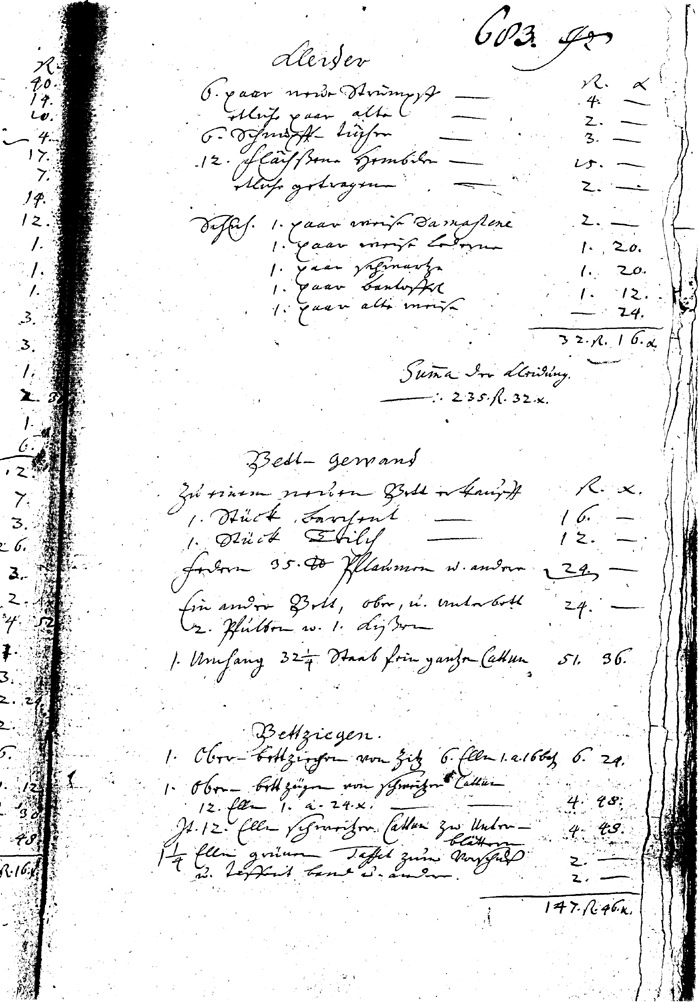 683.
Kleider
R. x
6. paar neue Strümpff — 4. —
etliche paar alte — 2. —
6. Schnupff tücher — 3. —
12. flächßene Hembder — 15. —
etliche getragene — 2. —
Schuh. 1. paar weiße Damastene 2. —
1. paar weiße lederne 1. 20.
1. paar schwartze 1. 20.
1. paar pantoffel 1. 12.
1. paar alte weiße — 24.
32. R. 16. x
Summa der Kleidung.
—:. 235. R. 32. x.
Bett- gewand
Zu einem neuen Bett erkaufft R. x.
1. Stück barchent — 16. —
1. Stück Trilch — 12. —
federn 35. Pflaumen u. andere 24. —
Ein ander Bett, ober, u. unterbett 24. —
2. Pfulben u. 1. Küßen
1. Umhang 32 1/4 Staab fein gantzen Cattun 51. 36.
Bettziegen.
1. Ober- bettziechen von Zitz 6. Ellen 1. a. 16 bz 6. 24.
1. Ober- bettzügen von schweitzer Cattun
12. Ellen 1. a. 24. x. — — 4. 48.
It. 12. Ellen schweitzer Cattun zu Unter- 4. 48.
blättern
1 1/4 Ellen grünen Taffet zum Vorschuß 2. —
u. band u. andere. 2. —
147. R. 46. x.
R.
40.
14.
20.
4.
17.
7.
14.
12.
1.
1.
1.
3.
3.
1.
2.
1.
6.
12.
7.
3.
26.
3.
2.
4 52
3.
2. 24
2
6.
1 12
30
48
R. 16. x